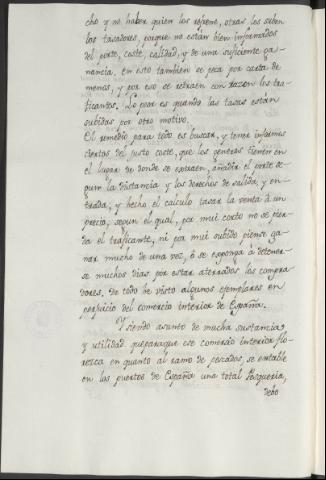 cho y no haber quien los refrene, otras los suben
los tasadores, porque no estàn bien informados
del porte, coste, calidad, y de una suficiente ga-
nancia. En esto tambien se peca por carta de
menos, y por eso se retraen con razon los tra-
ficantes. Lo peor es quando las tasas estàn
subidas por otro motivo.
El remedio para todo es buscar, y tener informes
ciertos del justo coste, que los generos tienen en
el lugar de donde se extraen, añadir el porte se-
gun la distancia y los derechos de salida, y en-
trada, y hecho el calculo tasar la venta à un
precio, segun el qual, por mui corto no se pier-
da el traficante, ni por mui subido piense ga-
nar mucho de una vez, ò se exponga à detener-
se muchos dias por estar aterrados los compra-
dores. De todo he visto algunos exemplares en
perjuicio del comercio interior de España.
Y siendo asunto de mucha sustancia
y utilidad que para que ese comercio interior flo-
rezca en quanto al ramo de pescados, se entable
en los puertos de España una total Pesqueria,
debo